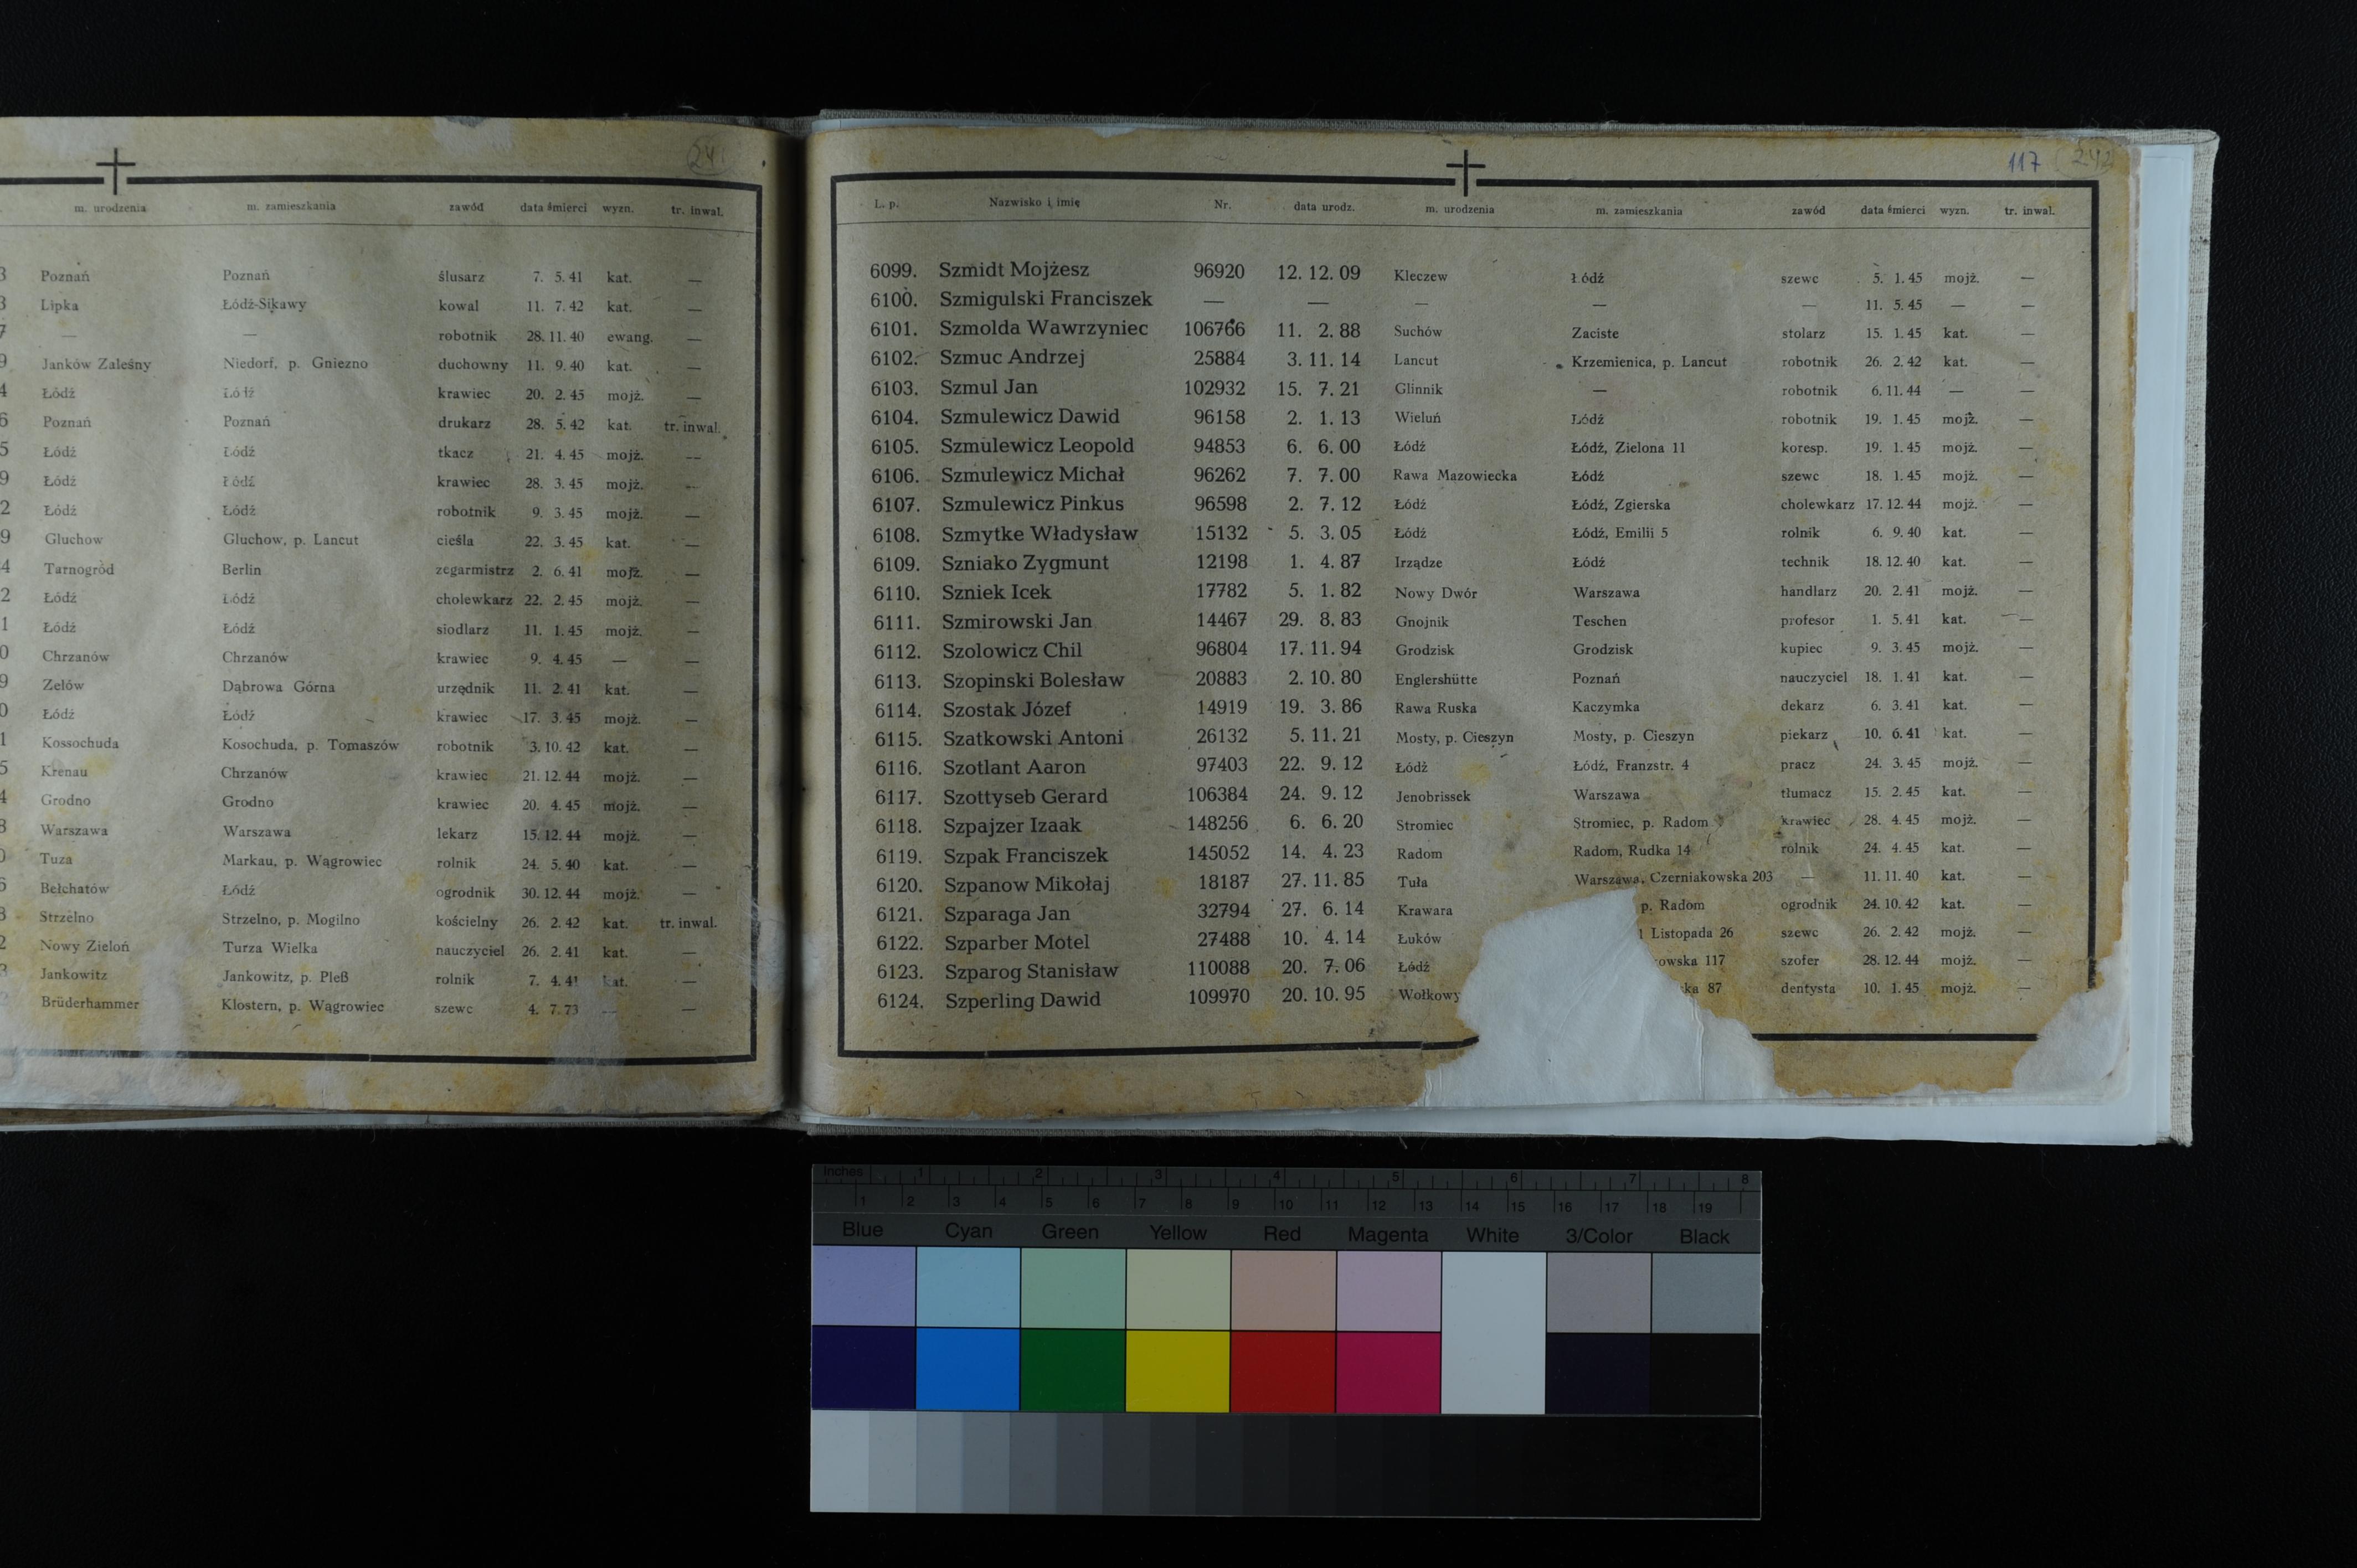 m. urodzenia m. zamieszkania zawód data śmierci wyzn. tr. inwal.
3 Poznań Poznań ślusarz 7. 5. 41 kat. —
3 Lipka Łódź-Sikawy kowal 11. 7. 42 kat. —
7 — — robotnik 28. 11. 40 ewang. —
9 Janków Zaleśny Niedorf, p. Gniezno duchowny 11. 9. 40 kat. —
4 Łódź Łódź krawiec 20. 2. 45 mojż. —
6 Poznań Poznań drukarz 28. 5. 42 kat. tr. inwal.
5 Łódź Łódź tkacz 21. 4. 45 mojż. —
9 Łódź Łódź krawiec 28. 3. 45 mojż. —
2 Łódź Łódź robotnik 9. 3. 45 mojż. —
9 Gluchow Gluchow, p. Lancut cieśla 22. 3. 45 kat. —
4 Tarnogród Berlin zegarmistrz 2. 6. 41 mojż. —
2 Łódź Łódź cholewkarz 22. 2. 45 mojż. —
1 Łódź Łódź siodlarz 11. 1. 45 mojż. —
0 Chrzanów Chrzanów krawiec 9. 4. 45 — —
9 Zelów Dąbrowa Górna urzędnik 11. 2. 41 kat. —
0 Łódź Łódź krawiec 17. 3. 45 mojż. —
1 Kossochuda Kosochuda, p. Tomaszów robotnik 3. 10. 42 kat. —
5 Krenau Chrzanów krawiec 21. 12. 44 mojż. —
4 Grodno Grodno krawiec 20. 4. 45 mojż. —
3 Warszawa Warszawa lekarz 15. 12. 44 mojż. —
0 Tuza Markau, p. Wągrowiec rolnik 24. 5. 40 kat. —
6 Bełchatów Łódź ogrodnik 30. 12. 44 mojż. —
3 Strzelno Strzelno, p. Mogilno kościelny 26. 2. 42 kat. tr. inwal.
2 Nowy Zieloń Turza Wielka nauczyciel 26. 2. 41 kat. —
Jankowitz Jankowitz, p. Pleß rolnik 7. 4. 41 kat. —
Brüderhammer Klostern, p. Wągrowiec szewc 4. 7. 73 — —
117 242
L. p. Nazwisko i imię Nr. data urodz. m. urodzenia m. zamieszkania zawód data śmierci wyzn. tr. inwal.
6099. Szmidt Mojżesz 96920 12. 12. 09 Kleczew Łódź szewc 5. 1. 45 mojż. —
6100. Szmigulski Franciszek — — — — — 11. 5. 45 — —
6101. Szmolda Wawrzyniec 106766 11. 2. 88 Suchów Zaciste stolarz 15. 1. 45 kat. —
6102. Szmuc Andrzej 25884 3. 11. 14 Lancut Krzemienica, p. Lancut robotnik 26. 2. 42 kat. —
6103. Szmul Jan 102932 15. 7. 21 Glinnik — robotnik 6. 11. 44 — —
6104. Szmulewicz Dawid 96158 2. 1. 13 Wieluń Łódź robotnik 19. 1. 45 mojż. —
6105. Szmulewicz Leopold 94853 6. 6. 00 Łódź Łódź, Zielona 11 koresp. 19. 1. 45 mojż. —
6106. Szmulewicz Michał 96262 7. 7. 00 Rawa Mazowiecka Łódź szewc 18. 1. 45 mojż. —
6107. Szmulewicz Pinkus 96598 2. 7. 12 Łódź Łódź, Zgierska cholewkarz 17. 12. 44 mojż. —
6108. Szmytke Władysław 15132 5. 3. 05 Łódź Łódź, Emilii 5 rolnik 6. 9. 40 kat. —
6109. Szniako Zygmunt 12198 1. 4. 87 Irządze Łódź technik 18. 12. 40 kat. —
6110. Szniek Icek 17782 5. 1. 82 Nowy Dwór Warszawa handlarz 20. 2. 41 mojż. —
6111. Szmirowski Jan 14467 29. 8. 83 Gnojnik Teschen profesor 1. 5. 41 kat. —
6112. Szolowicz Chil 96804 17. 11. 94 Grodzisk Grodzisk kupiec 9. 3. 45 mojż. —
6113. Szopinski Bolesław 20883 2. 10. 80 Englershütte Poznań nauczyciel 18. 1. 41 kat. —
6114. Szostak Józef 14919 19. 3. 86 Rawa Ruska Kaczymka dekarz 6. 3. 41 kat. —
6115. Szatkowski Antoni 26132 5. 11. 21 Mosty, p. Cieszyn Mosty, p. Cieszyn piekarz 10. 6. 41 kat. —
6116. Szotlant Aaron 97403 22. 9. 12 Łódź Łódź, Franzstr. 4 pracz 24. 3. 45 mojż. —
6117. Szottyseb Gerard 106384 24. 9. 12 Jenobrissek Warszawa tłumacz 15. 2. 45 kat. —
6118. Szpajzer Izaak 148256 6. 6. 20 Stromiec Stromiec, p. Radom krawiec 28. 4. 45 mojż. —
6119. Szpak Franciszek 145052 14. 4. 23 Radom Radom, Rudka 14 rolnik 24. 4. 45 kat. —
6120. Szpanow Mikołaj 18187 27. 11. 85 Tuła Warszawa, Czerniakowska 203 — 11. 11. 40 kat. —
6121. Szparaga Jan 32794 27. 6. 14 Krawara p. Radom ogrodnik 24. 10. 42 kat. —
6122. Szparber Motel 27488 10. 4. 14 Łuków 1 Listopada 26 szewc 26. 2. 42 mojż. —
6123. Szparog Stanisław 110088 20. 7. 06 Łódź owska 117 szofer 28. 12. 44 mojż. —
6124. Szperling Dawid 109970 20. 10. 95 Wołkowy ka 87 dentysta 10. 1. 45 mojż. —
Inches 1 2 3 4 5 6 7 8
1 2 3 4 5 6 7 8 9 10 11 12 13 14 15 16 17 18 19
Blue Cyan Green Yellow Red Magenta White 3/Color Black